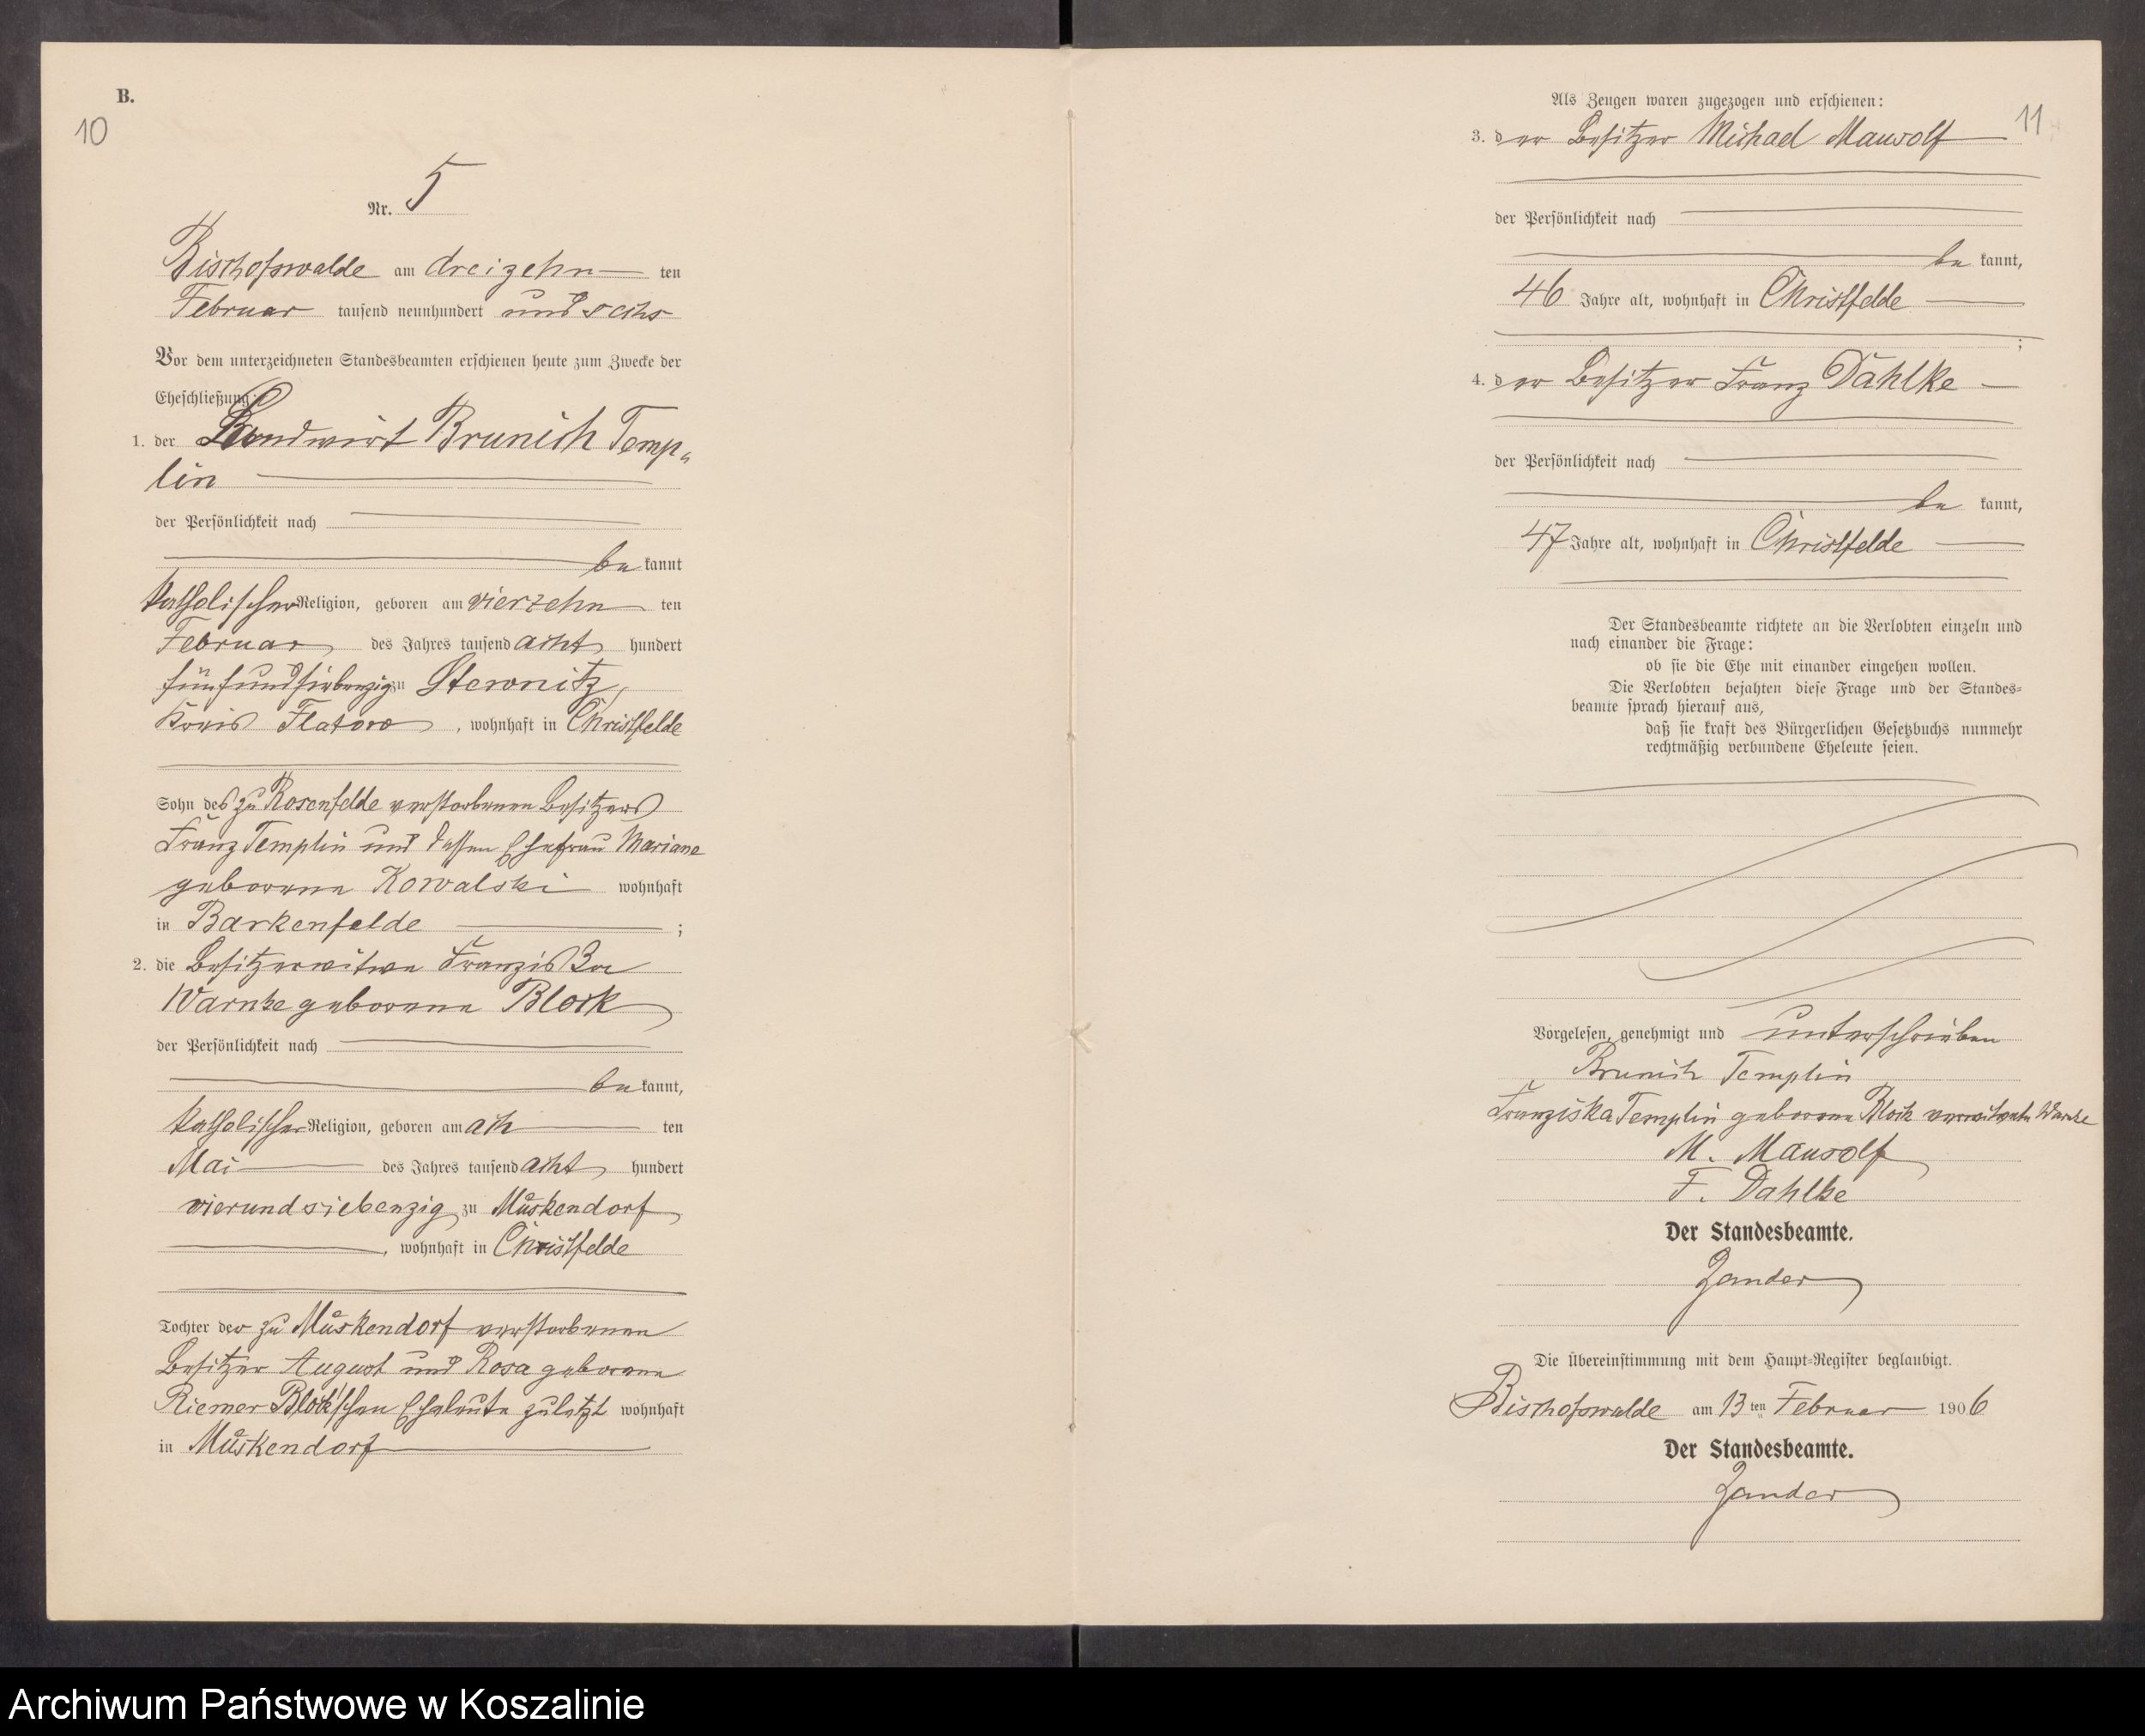 B.
10
Nr. 5
Bischofswalde am dreizehn ten
Februar tausend neunhundert und sechs
Vor dem unterzeichneten Standesbeamten erschienen heute zum Zwecke der
Eheschließung:
1. der Landwirt Brunish Temp„
lin
der Persönlichkeit nach
be kannt
katholischer Religion, geboren am vierzehn ten
Februar des Jahres tausend acht hundert
fünfundsiebenzig zu Stewnitz,
Kreis Flatow, wohnhaft in Christfelde
Sohn des zu Rosenfelde verstorbenen Besitzers
Franz Templin und dessen Ehefrau Mariane
geborene Kowalski wohnhaft
in Barkenfelde ;
2. die Besitzerwitwe Franziska
Warnke geborene Block
der Persönlichkeit nach
be kannt,
katholischer Religion, geboren am ach ten
Mai des Jahres tausend acht hundert
vierundsiebenzig zu Müskendorf
, wohnhaft in Christfelde
Tochter der zu Müskendorf verstorbenen
Besitzer August und Rosa geborene
Riemer Block'schen Eheleute zuletzt wohnhaft
in Müskendorf
Als Zeugen waren zugezogen und erschienen:
11
3. der Besitzer Michael Mausolf
der Persönlichkeit nach
be kannt,
46 Jahre alt, wohnhaft in Christfelde
;
4. der Besitzer Franz Dahlke
der Persönlichkeit nach
be kannt,
47 Jahre alt, wohnhaft in Christfelde
Der Standesbeamte richtete an die Verlobten einzeln und
nach einander die Frage:
ob sie die Ehe mit einander eingehen wollen.
Die Verlobten bejahten diese Frage und der Standes=
beamte sprach hierauf aus,
daß sie kraft des Bürgerlichen Gesetzbuchs nunmehr
rechtmäßig verbundene Eheleute seien.
Vorgelesen, genehmigt und unterschrieben
Brunish Templin
Franziska Templin geborene Block verwitwete Warnke
M. Mausolf
F. Dahlke
Der Standesbeamte.
Zander
Die Übereinstimmung mit dem Haupt=Register beglaubigt.
Bischofswalde am 13 ten Februar 1906
Der Standesbeamte.
Zander
Archiwum Państwowe w Koszalinie